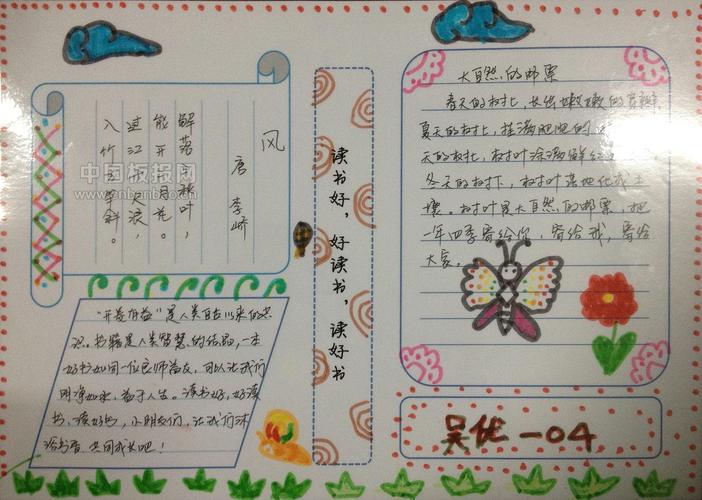 风
唐 李峤
解落三秋叶,
能开二月花。
过江千尺浪,
入竹万竿斜。
中国板报网
www.cnbanbao.cn
读书好,好读书,读好书
大自然的邮票
春天的树上,长出嫩嫩的
夏天的树上,挂满肥肥的
天的树上,树叶涂满鲜
冬天的树下,树叶落地化成土
壤。树叶是大自然的邮票,把
一年四季寄给你,寄给我,寄给
大家。
“开卷有益”是人类自古以来的共
识。书籍是人类智慧的结晶,一本
好书如同一位良师益友,可以让我们
明净如水,益于人生。读书好,好读
书,读好书,小朋友们,让我们沐
浴书香,共同成长吧!
吴优-04